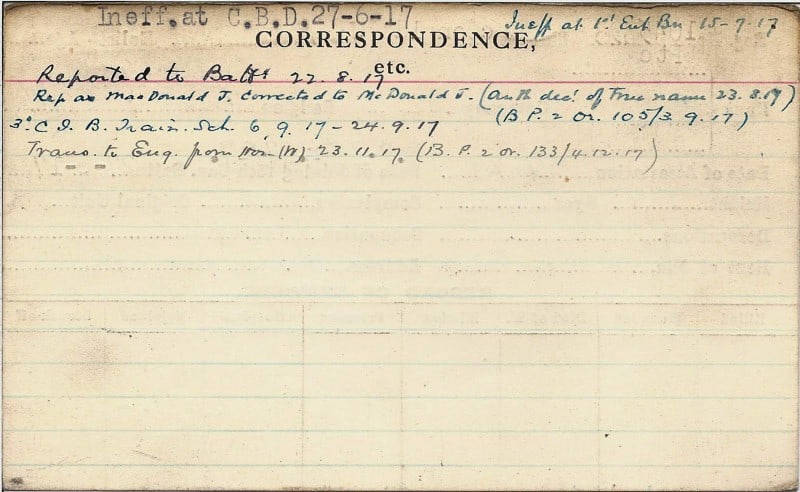 Ineff. at C.B.D. 27-6-17
Ineff at 1st Ent Bn 15-7-17
CORRESPONDENCE,
etc.
Reported to Battn 22.8.17
Rep as MacDonald J. corrected to McDonald J. (auth dec. of True name 23.8.17)
(B.P. 2 Or. 105/3.9.17)
3rd C I. B. Train. Sch. 6.9.17 - 24.9.17
Trans. to Eng. from (W) 23.11.17 (B.P. 2 or. 133/4.12.17)